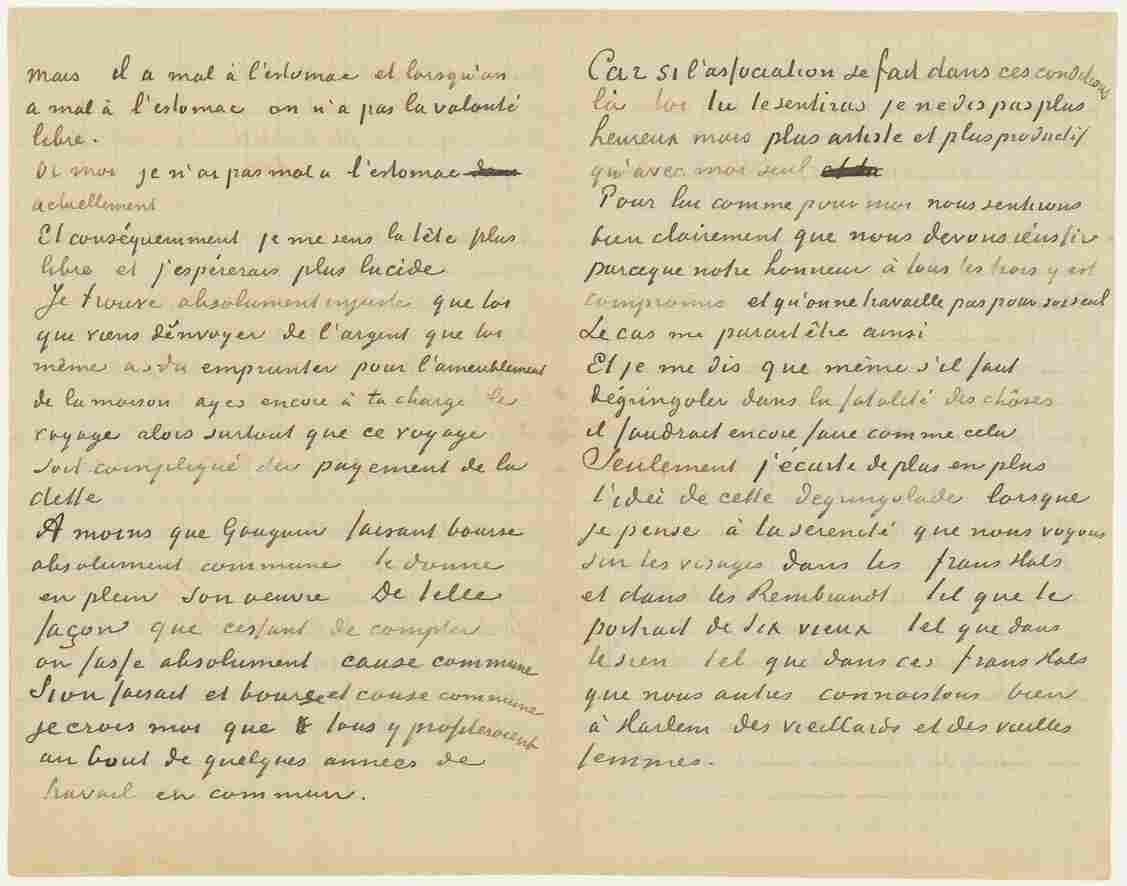 mais il a mal à l'estomac et lorsqu'on
a mal à l'estomac on n'a pas la volonté
libre.
Or moi je n'ai pas mal a l'estomac
actuellement
Et conséquemment je me sens la tête plus
libre et j'espérerais plus lucide
Je trouve absolument injuste que toi
que viens d'envoyer de l'argent que toi
même as du emprunter pour l'ameublement
de la maison ayes encore à ta charge le
voyage alors surtout que ce voyage
soit compliqué du payement de la
dette
A moins que Gauguin faisant bourse
absolument commune te donne
en plein son oeuvre De telle
façon que cessant de compter
on fasse absolument cause commune
Si on faisait et bourse et cause commune
je crois moi que tous y profiteraient
au bout de quelques années de
travail en commun.
Car si l'association se fait dans ces conditions
là toi tu te sentiras je ne dis pas plus
heureux mais plus artiste et plus productif
qu'avec moi seul
Pour lui comme pour moi nous sentirons
bien clairement que nous devons réussir
parceque notre honneur à tous les trois y est
compromis et qu'on ne travaille pas pour soi seul
Le cas me parait être ainsi
Et je me dis que même s'il faut
dégringoler dans la fatalité des chôses
il faudrait encore faire comme cela
Seulement j'écarte de plus en plus
l'idée de cette degringolade lorsque
je pense à la serenité que nous voyons
sur les visages dans les frans Hals
et dans les Rembrandt tel que le
portrait de Six vieux tel que dans
le sien tel que dans ces frans Hals
que nous autres connaissons bien
à Harlem des vieillards et des vieilles
femmes.